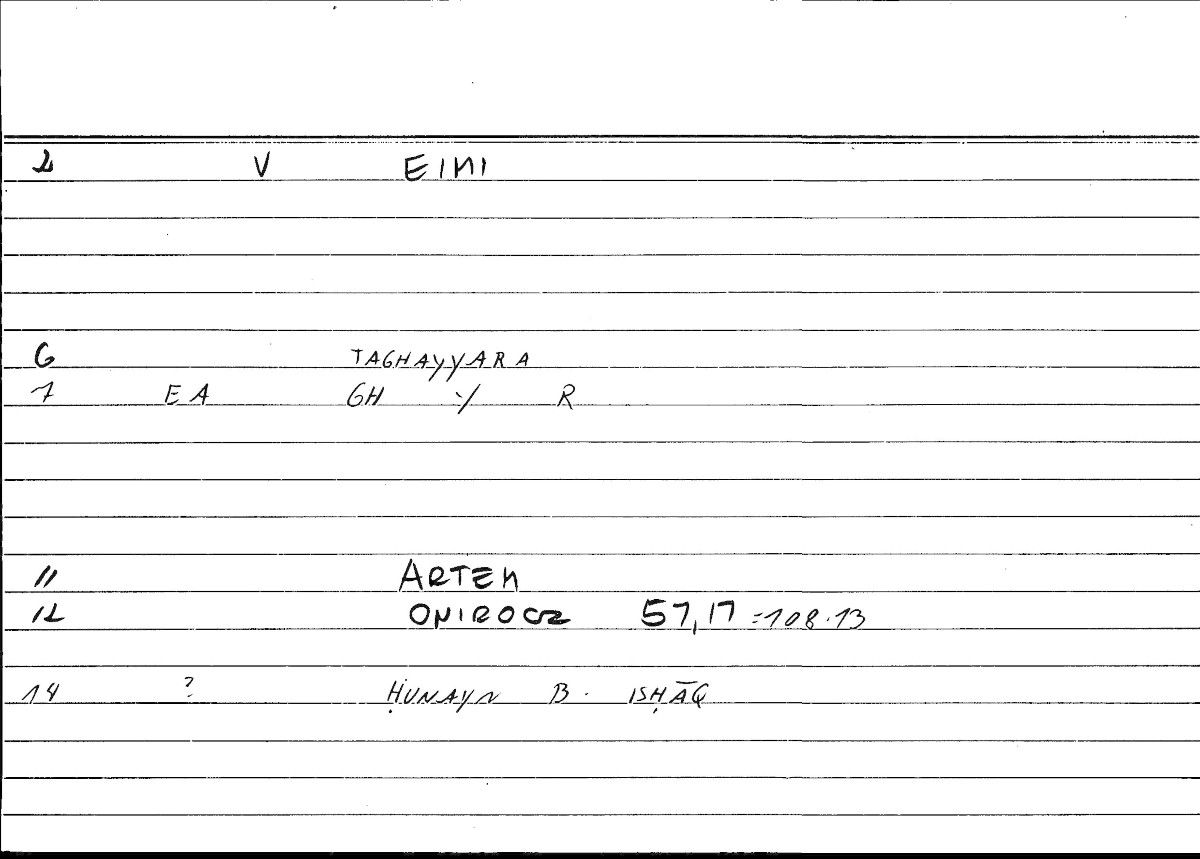 2 V EIMI
6 TAGHAYYARA
7 EA GH :/ R
11 ARTEM
12 ONIROCR 57,17 =108.13
14 ? ḤUNAYN B. ISḤĀQ